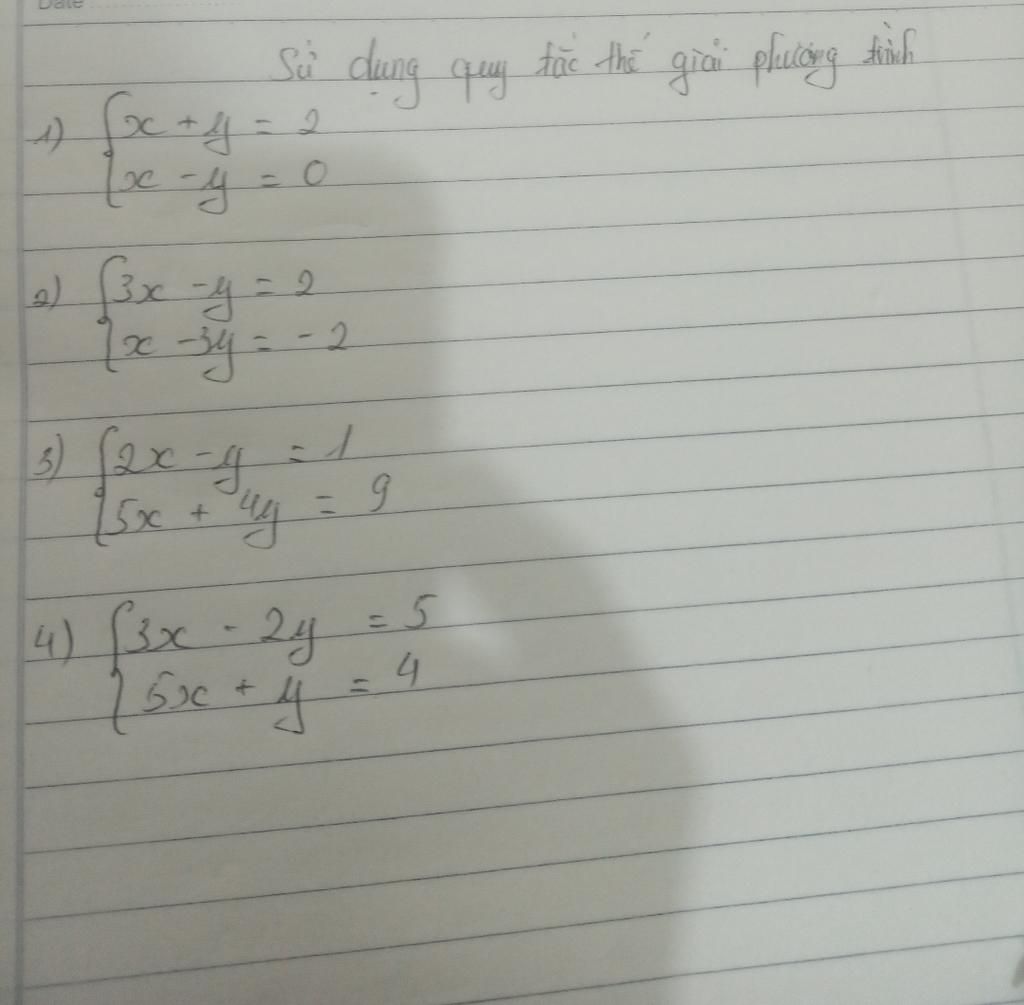 Date
Sử dụng quy tắc thế giải phương trình
1) {x + y = 2
{x - y = 0
2) {3x - y = 2
{x - 3y = -2
3) {2x - y = 1
{5x + 4y = 9
4) {3x - 2y = 5
{5x + y = 4